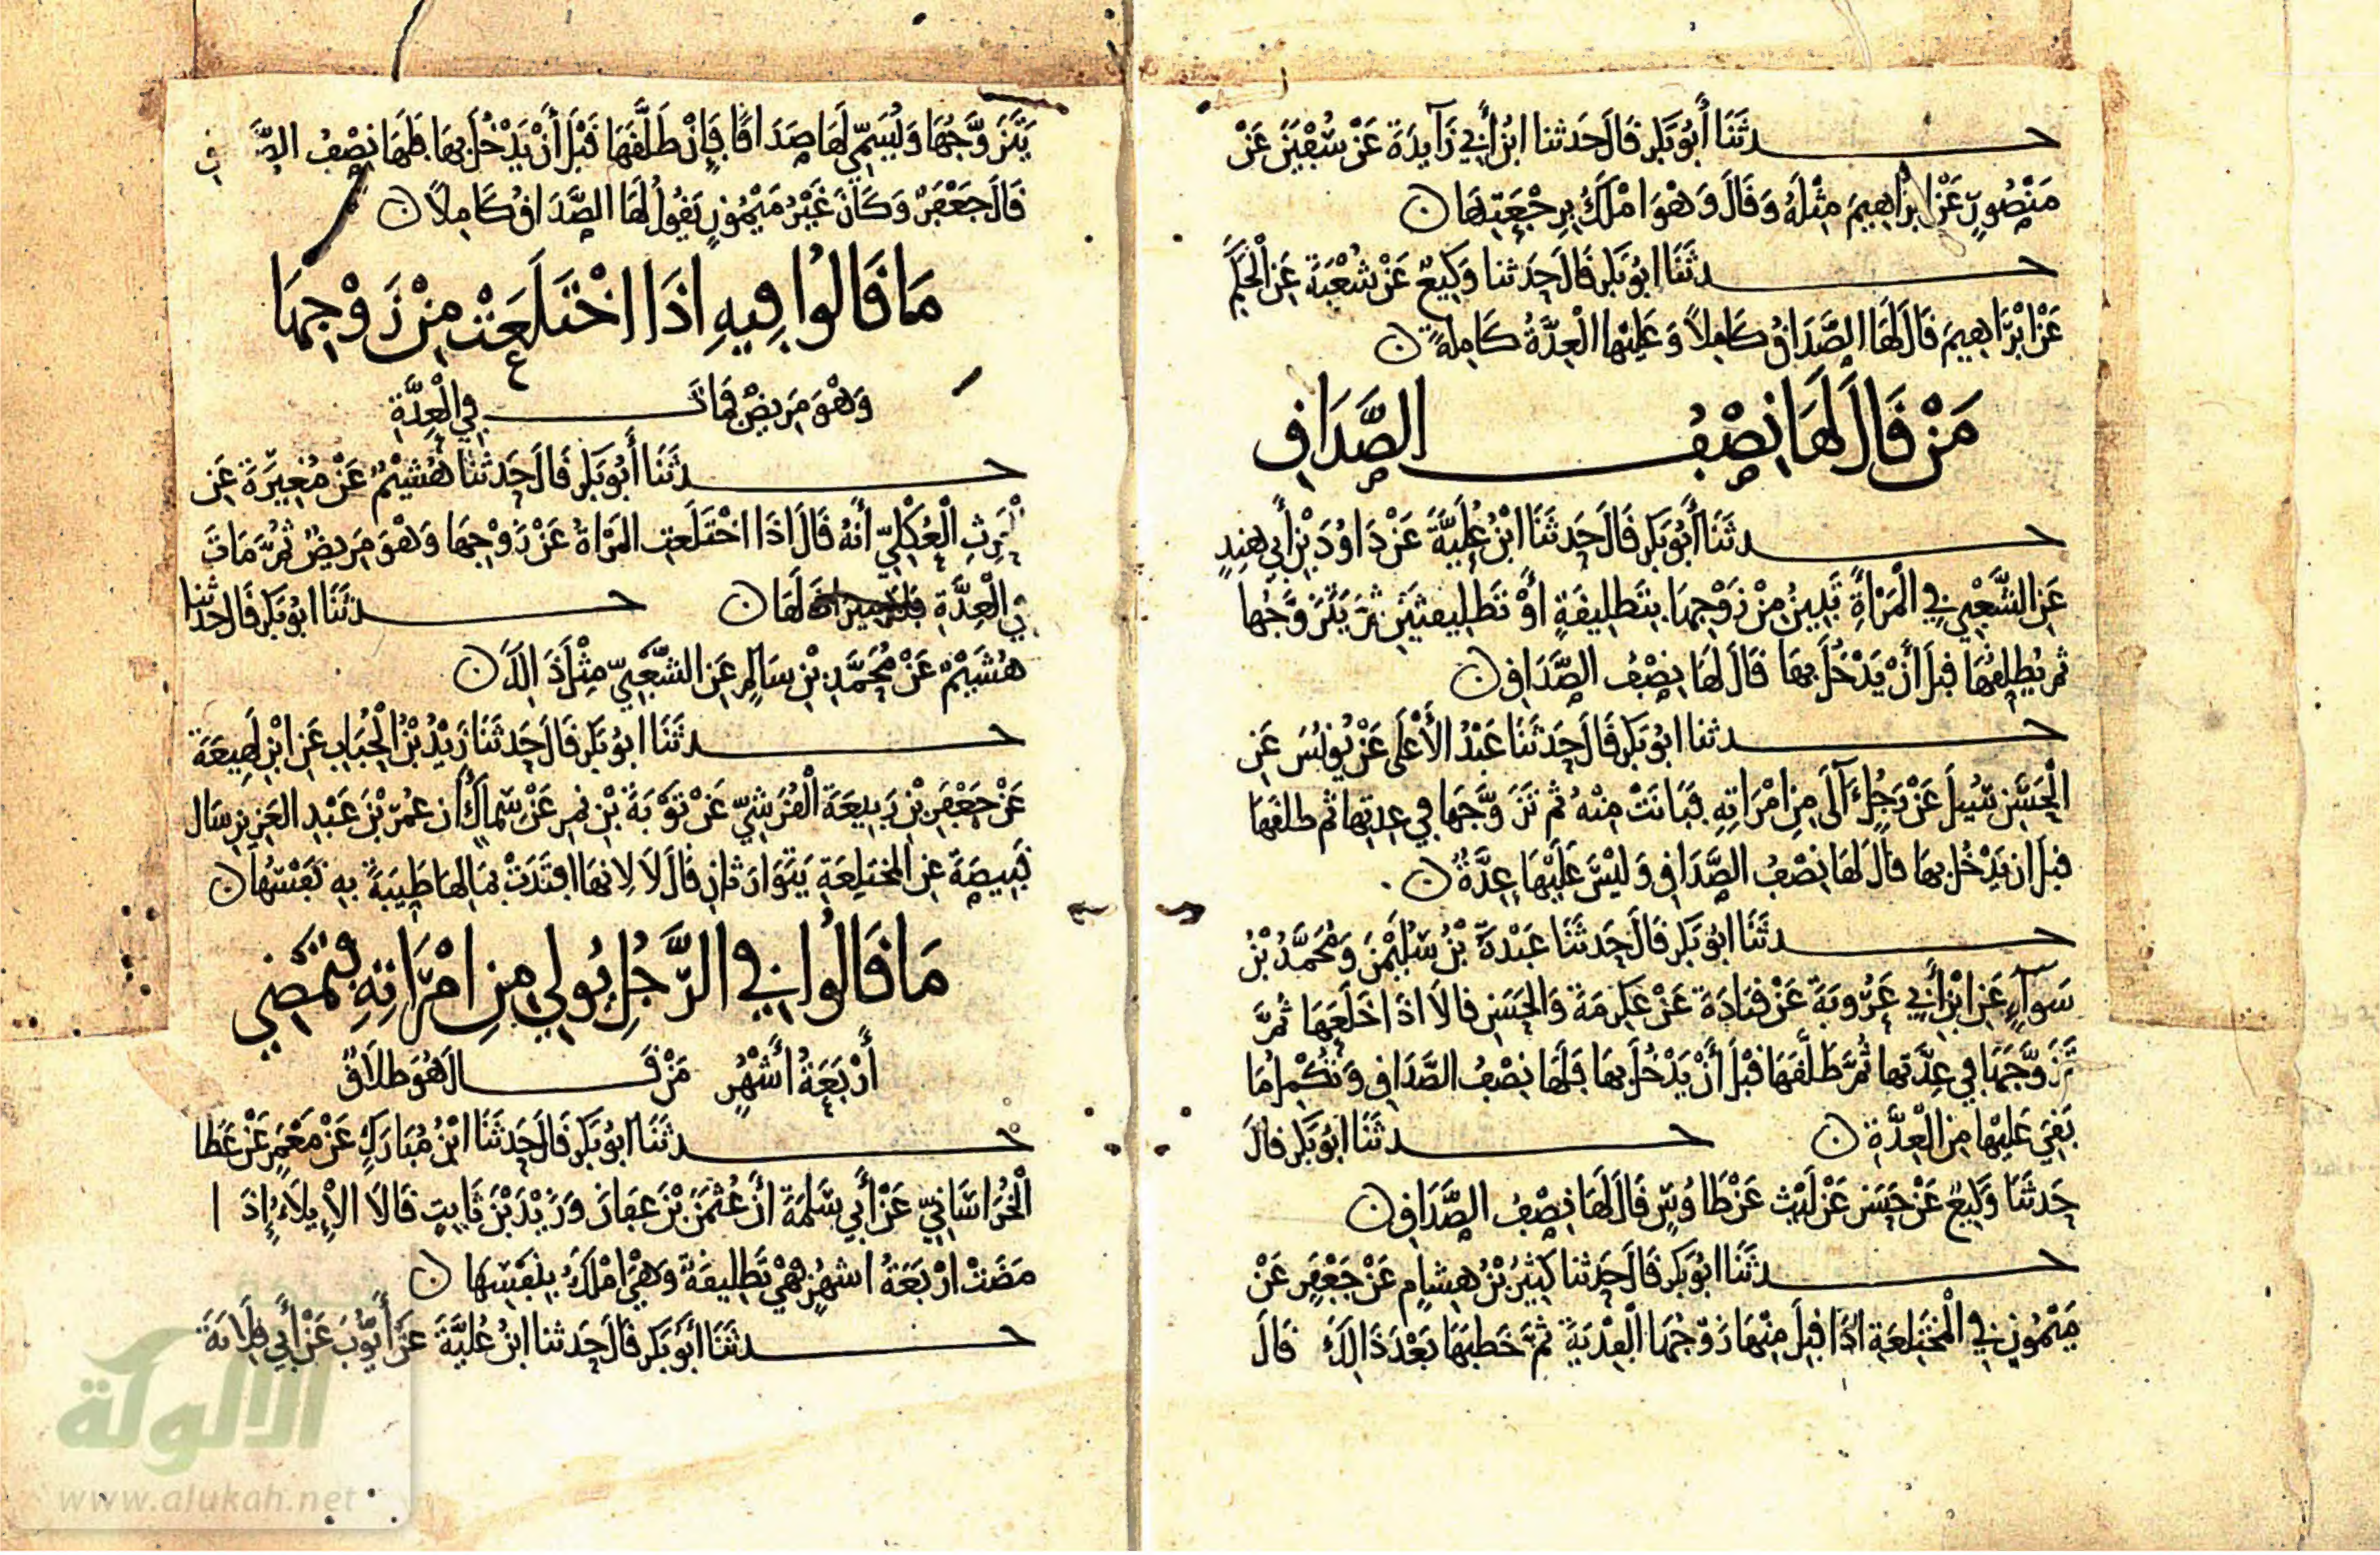 حدثنا أبو بكر قال حدثنا ابن أبي زآيدة عن سفين عن
منصور عن إبراهيم مثله وقال وهو املك برجعتها
حدثنا ابو بكر قال حدثنا وكيع عن شعبة عن الحكم
عن ابراهيم قال لها الصداق كاملا وعليها العدة كاملة
من قال لها نصف الصداق
حدثنا أبو بكر قال حدثنا ابن علية عن داود بن أبي هند
عن الشعبي في المرأة تبين من زوجها بتطليقة أو تطليقتين ثم يتزوجها
ثم يطلقها قبل أن يدخل بها قال لها نصف الصداق
حدثنا ابو بكر قال حدثنا عبد الأعلى عن يونس عن
الحسن سيل عن رجل آلى من امراته فبانت منه ثم تزوجها في عدتها ثم طلقها
قبل ان يدخل بها قال لها نصف الصداق وليس عليها عدة
حدثنا ابو بكر قال حدثنا عبدة بن سليمن ومحمد بن
سوآء عن ابن أبي عروبة عن قتادة عن عكرمة والحسن قالا اذا اخلعها ثم
تزوجها في عدتها ثم طلقها قبل أن يدخل بها فلها نصف الصداق وتكمل ما
بقي عليها من العدة حدثنا ابو بكر قال
حدثنا وكيع عن حسن عن ليث عن طاوس قال لها نصف الصداق
حدثنا ابو بكر قال حدثنا كثير بن هشام عن جعفر عن
ميمون في المختلعة اذا قبل منها زوجها الفدية ثم خطبها بعد ذالك قال
يتزوجها ويسمي لها صداقا فإن طلقها قبل أن يدخل بها فلها نصف الصد ق
قال جعفر وكان غير ميمون يقول لها الصداق كاملا
ما قالوا فيه اذا اختلعت من زوجها
وهو مريض فمات في العدة
حدثنا أبو بكر قال حدثنا هشيم عن مغيرة عن
الحرث العكلي أنه قال اذا اختلعت المراة عن زوجها وهو مريض ثم مات
في العدة فلا ميراث لها حدثنا ابو بكر قال حدثنا
هشيم عن محمد بن سالم عن الشعبي مثل ذالك
حدثنا ابو بكر قال حدثنا زيد بن الحباب عن ابن لهيعة
عن جعفر بن ربيعة القرشي عن توبة بن نمر عن سماك أن عمر بن عبد العزيز سال
قبيصة عن المختلعة يتوارثان قال لا لانها افتدت بمالها طيبة به نفسها
ما قالوا في الرجل يولي من امراته فتمضي
أربعة أشهر من قال هو طلاق
حدثنا ابو بكر قال حدثنا ابن مبارك عن معمر عن عطا
الخراساني عن أبي سلمة أن عثمن بن عفان وزيد بن ثابت قالا الإيلاء إذا
مضت اربعة اشهر فهي تطليقة وهي املك بنفسها
حدثنا أبو بكر قال حدثنا ابن علية عن أيوب عن أبي قلابة
الالوكة
www.alukah.net